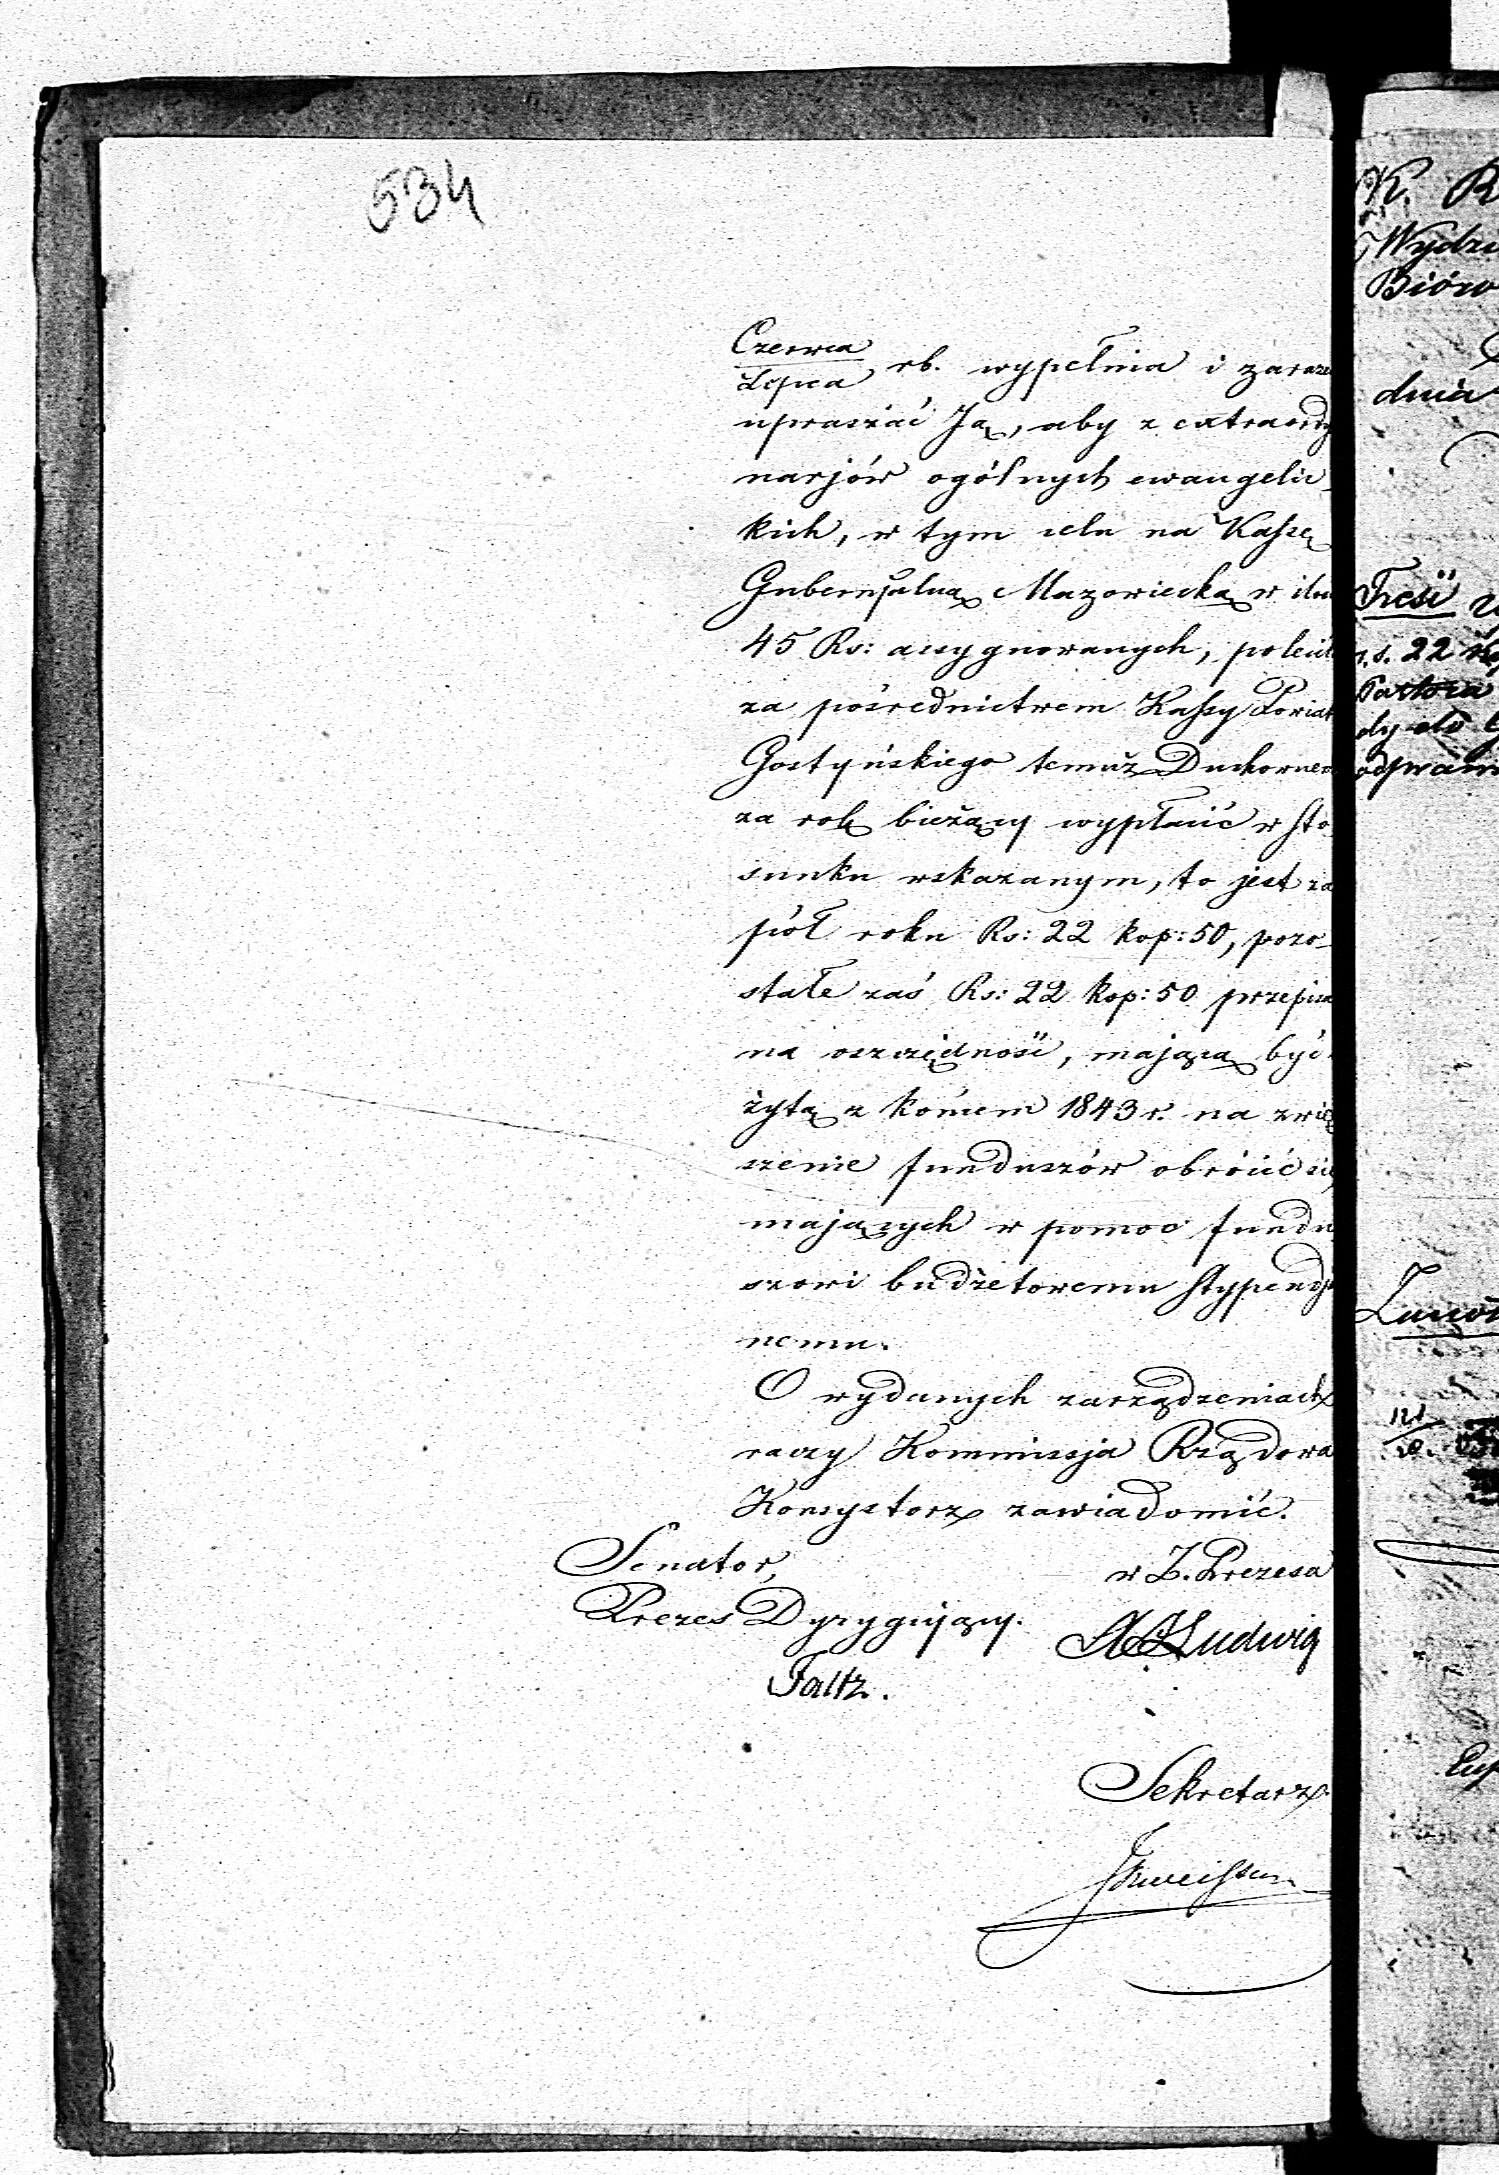 534
Czerwca
Lipca rb. wypełnia i zaraze
upraszać Ją, aby z extraordy
narjów ogólnych ewangelic-
kich, w tym celu na Kassę
Gubernjalną Mazowiecką w ilo
45 Rs: assygnowanych, polecić
za pośrednictwem Kassy Powiat
Gostyńskiego temuż Duchowne
za rok bieżący wypłacić w sto-
sunku wskazanym, to jest za
pół roku Rs: 22 kop: 50, pozo-
stałe zaś Rs: 22 kop: 50 przepisa
na oszczędność, mającą być
żytą z końcem 1843 r. na zwię
szenie funduszów obrócić się
mających w pomoc fundu
szowi budżetowemu stypendy
nemu.
O wydanych zarządzeniach
raczy Kommissja Rządowa
Konsystorz zawiadomić.
Senator,
Prezes Dyrygujący.
Faltz.
w Z. Prezesa
Ludwig
Sekretarz
K. R
Wydzi
Bióro
dnia
Treść
r.s. 22
Pastora
dy do